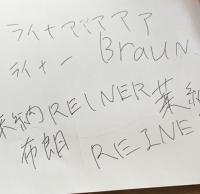 ライナアアアアア
ライナー Braun
納 REINER 莱納
希朗 REINE